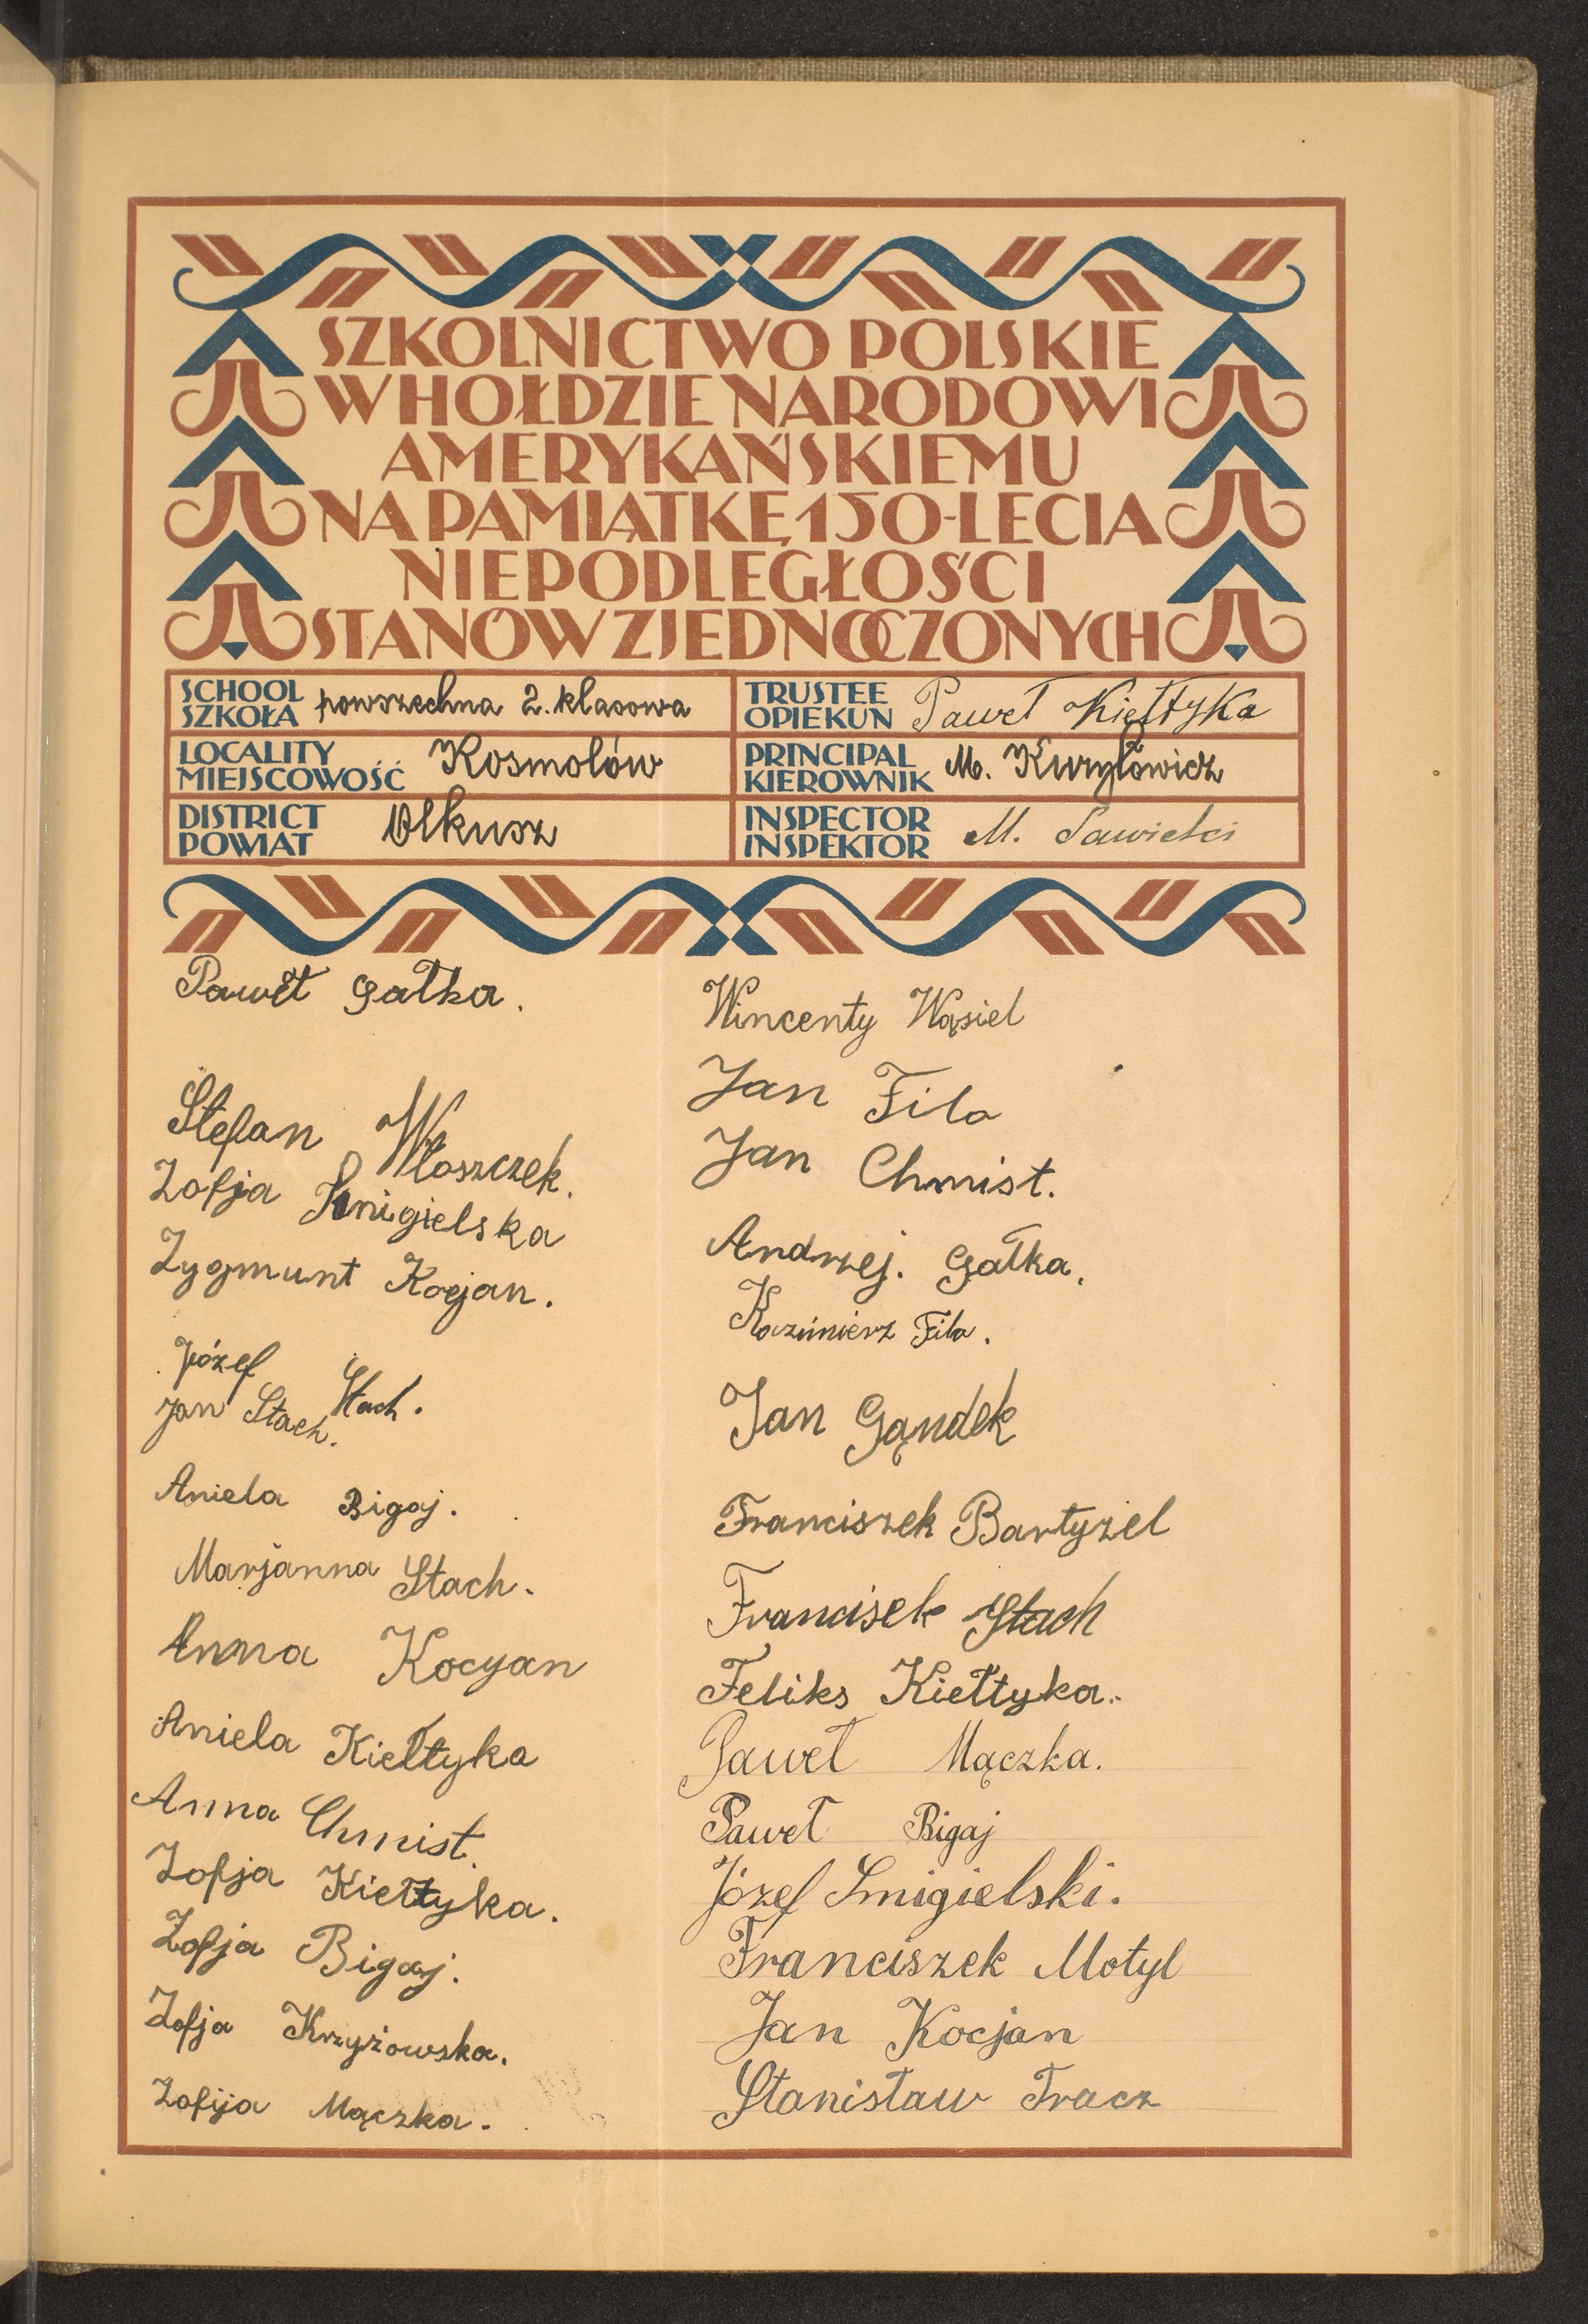 SZKOLNICTWO POLSKIE
W HOŁDZIE NARODOWI
AMERYKAŃSKIEMU
NA PAMIĄTKĘ 150-LECIA
NIEPODLEGŁOŚCI
STANÓW ZJEDNOCZONYCH
SCHOOL
SZKOŁA powszechna 2. klasowa
TRUSTEE
OPIEKUN Paweł Kiełtyka
LOCALITY
MIEJSCOWOŚĆ Kosmolów
PRINCIPAL
KIEROWNIK M. Kuryłowicz
DISTRICT
POWIAT Olkusz
INSPECTOR
INSPEKTOR M.
Paweł Gałka.
Stefan Włoszczek.
Zofja
Zygmunt Kocjan.
Józef Stach.
Jan Stach.
Aniela Bigaj.
Marjanna Stach.
Anna Kocyan
Aniela Kiełtyka
Anna Chmist.
Zofja Kiełtyka.
Zofja Bigaj.
Zofja Krzyżowska.
Zofija Mączka.
Wincenty Wąsiel
Jan Fila
Jan Chmist.
Andrzej. Gałka.
Kazimierz Fila.
Jan Gąndek
Franciszek Bartyzel
Francisek Stach
Feliks Kiełtyka.
Paweł Mączka.
Paweł Bigaj
Józef Smigielski.
Franciszek Motyl
Jan Kocjan
Stanisław Tracz